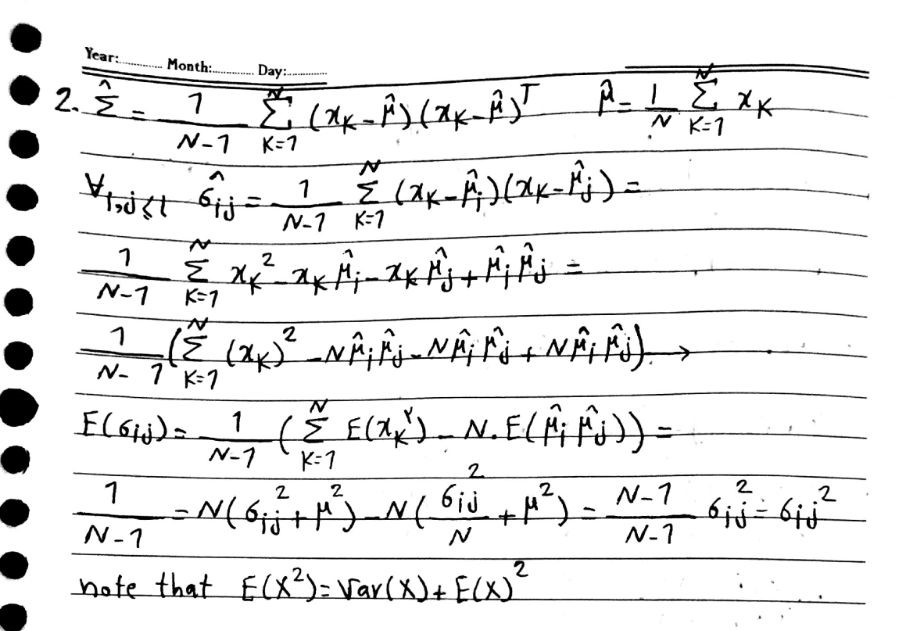 Year:............ Month:............ Day:............
2. Σ̂ = 1/(N-1) Σ_{K=1}^{N} (x_K - μ̂)(x_K - μ̂)^T    μ̂ = 1/N Σ_{K=1}^{N} x_K
∀_{i,j≤l} σ̂_{ij} = 1/(N-1) Σ_{K=1}^{N} (x_K - μ̂_i)(x_K - μ̂_j) =
1/(N-1) Σ_{K=1}^{N} x_K^2 - x_K μ̂_i - x_K μ̂_j + μ̂_i μ̂_j =
1/(N-1) (Σ_{K=1}^{N} (x_K)^2 - N μ̂_i μ̂_j - N μ̂_i μ̂_j + N μ̂_i μ̂_j) →
E(σ_{ij}) = 1/(N-1) (Σ_{K=1}^{N} E(x_K^۲) - N. E(μ̂_i μ̂_j)) =
1/(N-1) = N(σ_{ij}^2 + μ^2) - N(σ_{ij}^2/N + μ^2) = (N-1)/(N-1) σ_{ij}^2 = σ_{ij}^2
note that E(X^2) = Var(X) + E(X)^2